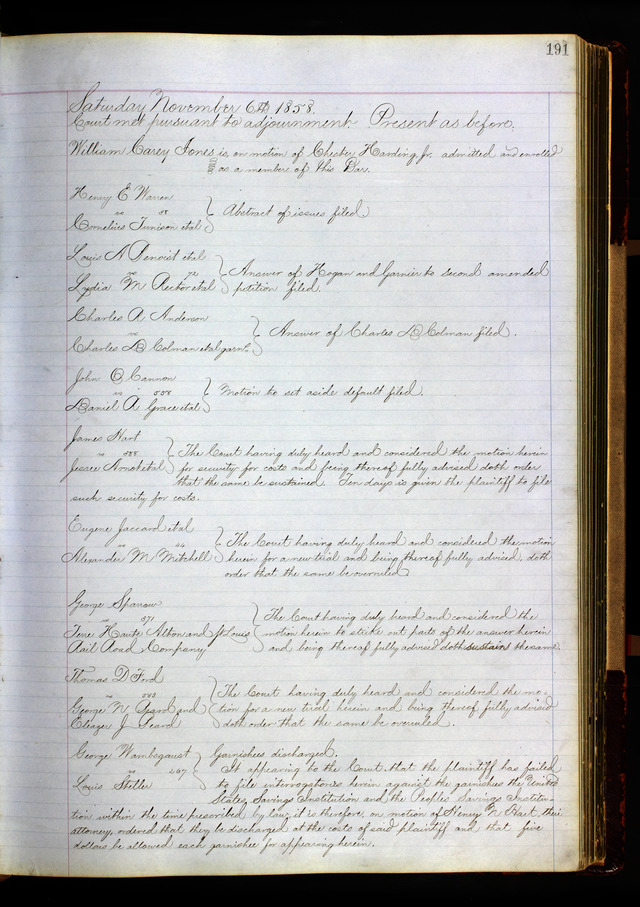 191
Saturday November 6th 1858.
Court met pursuant to adjournment. Present as before.
William Carey Jones is, on motion of Chester Harding, Jr. admitted and enrolled
as a member of this Bar.
Henry E Warren
vs 58
Cornelius Tunison etal
Abstract of issues filed
Louis A Benoist etal
vs 72
Lydia M Rector etal
Answer of Hogan and Garnier to second amended
petition filed.
Charles A Anderson
vs
Charles D Colman etal garn.
Answer of Charles D Colman filed.
John C Cannon
vs 558
Daniel A Grace etal
Motion to set aside default filed.
James Hart
vs 588
Jessee etal
The Court having duly heard and considered the motion herein
for security for costs and being thereof fully advised doth order
that the same be sustained. Ten days is given the plaintiff to file
such security for costs.
Eugene Jaccard etal
vs 44
Alexander M Mitchell
The Court having duly heard and considered the motion
herein for a new trial and being thereof fully advised, doth
order that the same be overruled
George Sparow
vs 571
Terre Haute Alton and St Louis
Rail Road Company
The Court having duly heard and considered the
motion herein to strike out parts of the answer herein
and being thereof fully advised doth sustain the same.
Thomas D Ford
vs 543
George N Peard and
Eleazer J Peard
The Court having duly heard and considered the mo-
tion for a new trial herein and being thereof fully advised
doth order that the same be overruled.
George Wambsgaust
vs 247
Louis Stelle
Garnishees discharged.
It appearing to the Court that the plaintiff has failed
to file interrogatories herein against the garnishees the United
States Savings Institution and the Peoples Savings Institu-
tion within the time prescribed by law, it is therefore, on motion of Henry N Hart, their
attorney, ordered that they be discharged at the costs of said plaintiff and that five
dollars be allowed each garnishee for appearing herein.